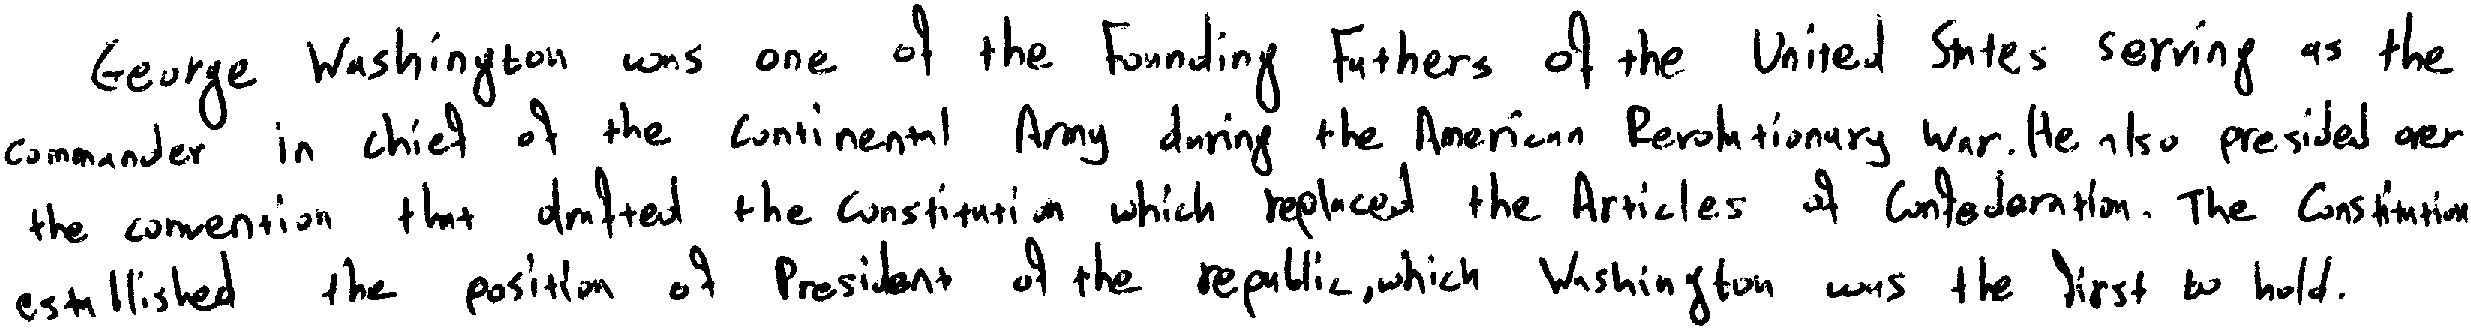 George Washington was one of the Founding Fathers of the United States serving as the
commander in chief of the Continental Army during the American Revolutionary War. He also presided over
the convention that drafted the Constitution which replaced the Articles of Confederation. The Constitution
established the position of President of the republic, which Washington was the first to hold.